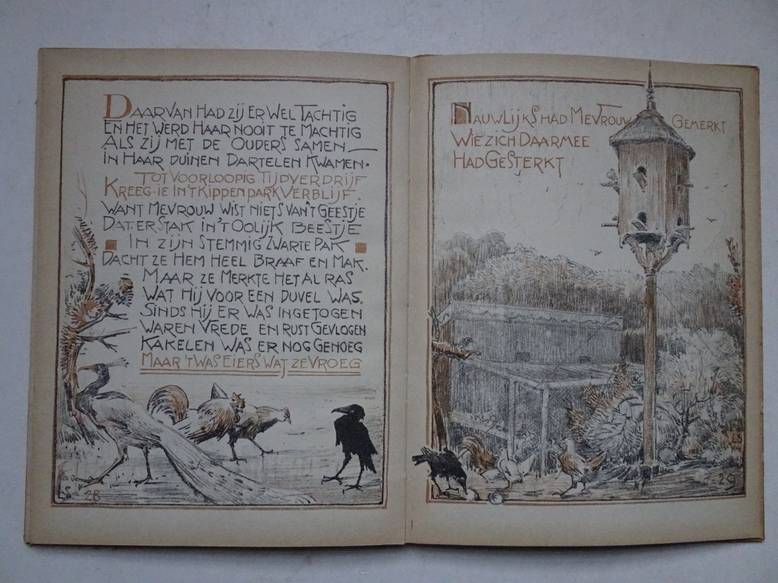 DAARVAN HAD ZIJ ER WEL TACHTIG
EN HET WERD HAAR NOOIT TE MACHTIG
ALS ZIJ MET DE OUDERS SAMEN
IN HAAR DUINEN DARTELEN KWAMEN.
TOT VOORLOOPIG TIJDVERDRIJF
KREEG-IE IN'T KIPPENPARK VERBLIJF.
WANT MEVROUW WIST NIETS VAN'T GEESTJE
DAT ER STAK IN'T OOLIJK BEESTJE
IN ZIJN STEMMIG ZWARTE PAK
DACHT ZE HEM HEEL BRAAF EN MAK.
MAAR ZE MERKTE HET AL RAS
WAT HIJ VOOR EEN DUVEL WAS.
SINDS HIJ ER WAS INGETOGEN
WAREN VREDE EN RUST GEVLOGEN
KAKELEN WAS ER NOG GENOEG
MAAR 'T WAS EIERS WAT ZE VROEG
LS 28
NAUWLIJKS HAD MEVROUW GEMERKT
WIE ZICH DAARMEE
HAD GESTERKT
LS
29